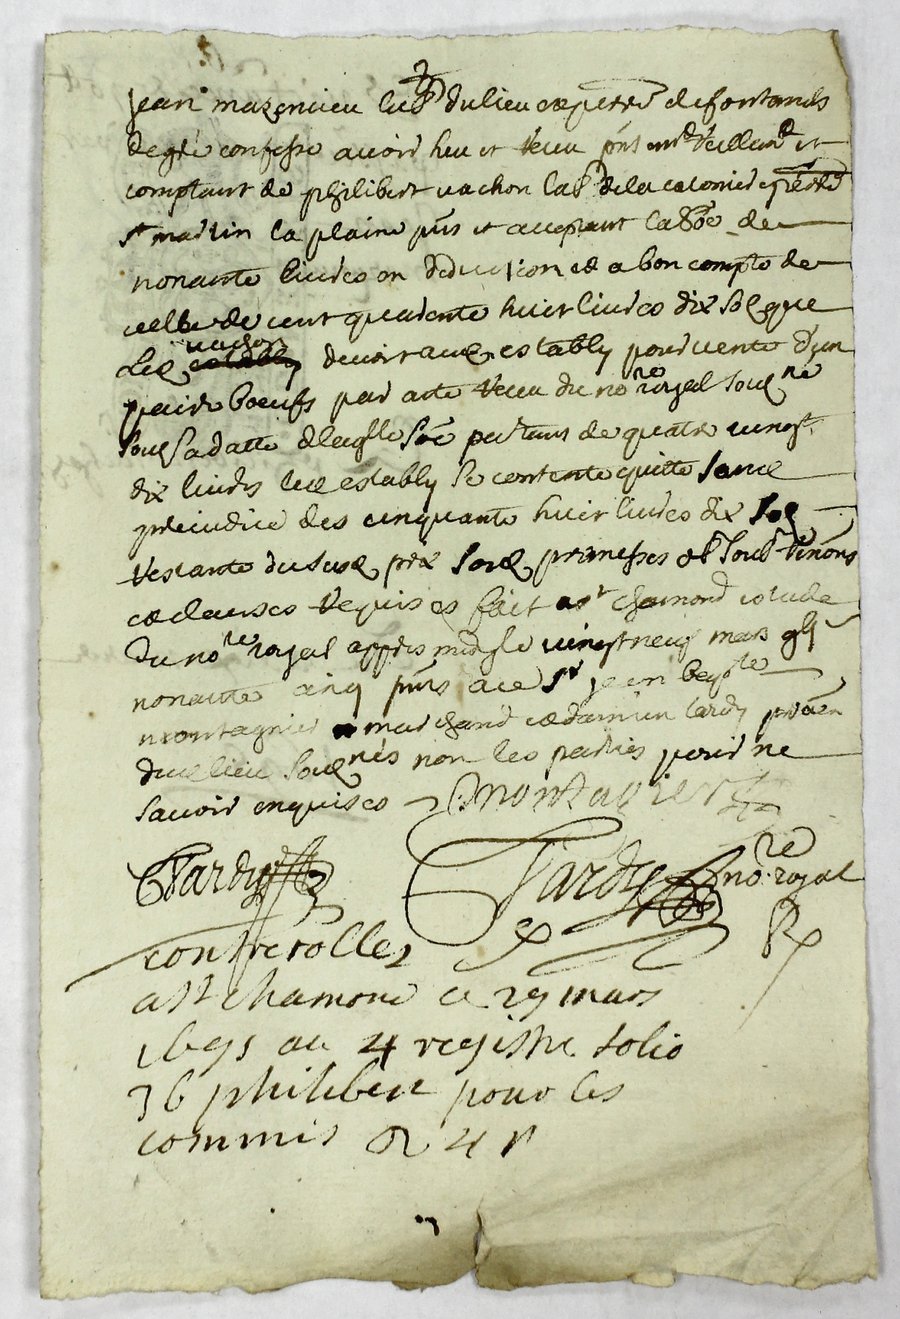 Jean mazencieu lab^r du lieu & perr^e de fontanes
de gré confesse avoir heu et receu pn̄t m^d veillan^d et
comptant de philibert vachon lab^r de la colonie perr^e
s^t martin la plaine pn̄s et acceptant la so͞e de
nonante livres en deduction & a bon compte de
celle de cent quarente huict livres dix sol que
led vachon devoit aud estably pour vente d'un
pair bœufs par acte receu du no^re royal soub^ne
soub sa datte de laq̄lle so͞e partant de quatre vingt
dix livres led estably se contente quitte sans
prejudice des cinquante huict livres dix sol
restante du susd prix soub promesses obl soub^s renōns
& clauses requises fait a s^t chamond estude
du no^re royal appres midy le vingt neuf mars
nonante cinq pn̄s ace s^r jean bap^te
montagnier marchand & damien tardy pratien
dud lieu soub^nés non les parties pour ne
savoir enquises montagnier
Tardy Tardy no^re royal
controlle
a st chamond ce 29 mars
1695 au 4 registre folio
36 philibert pour les
commis R 4 s